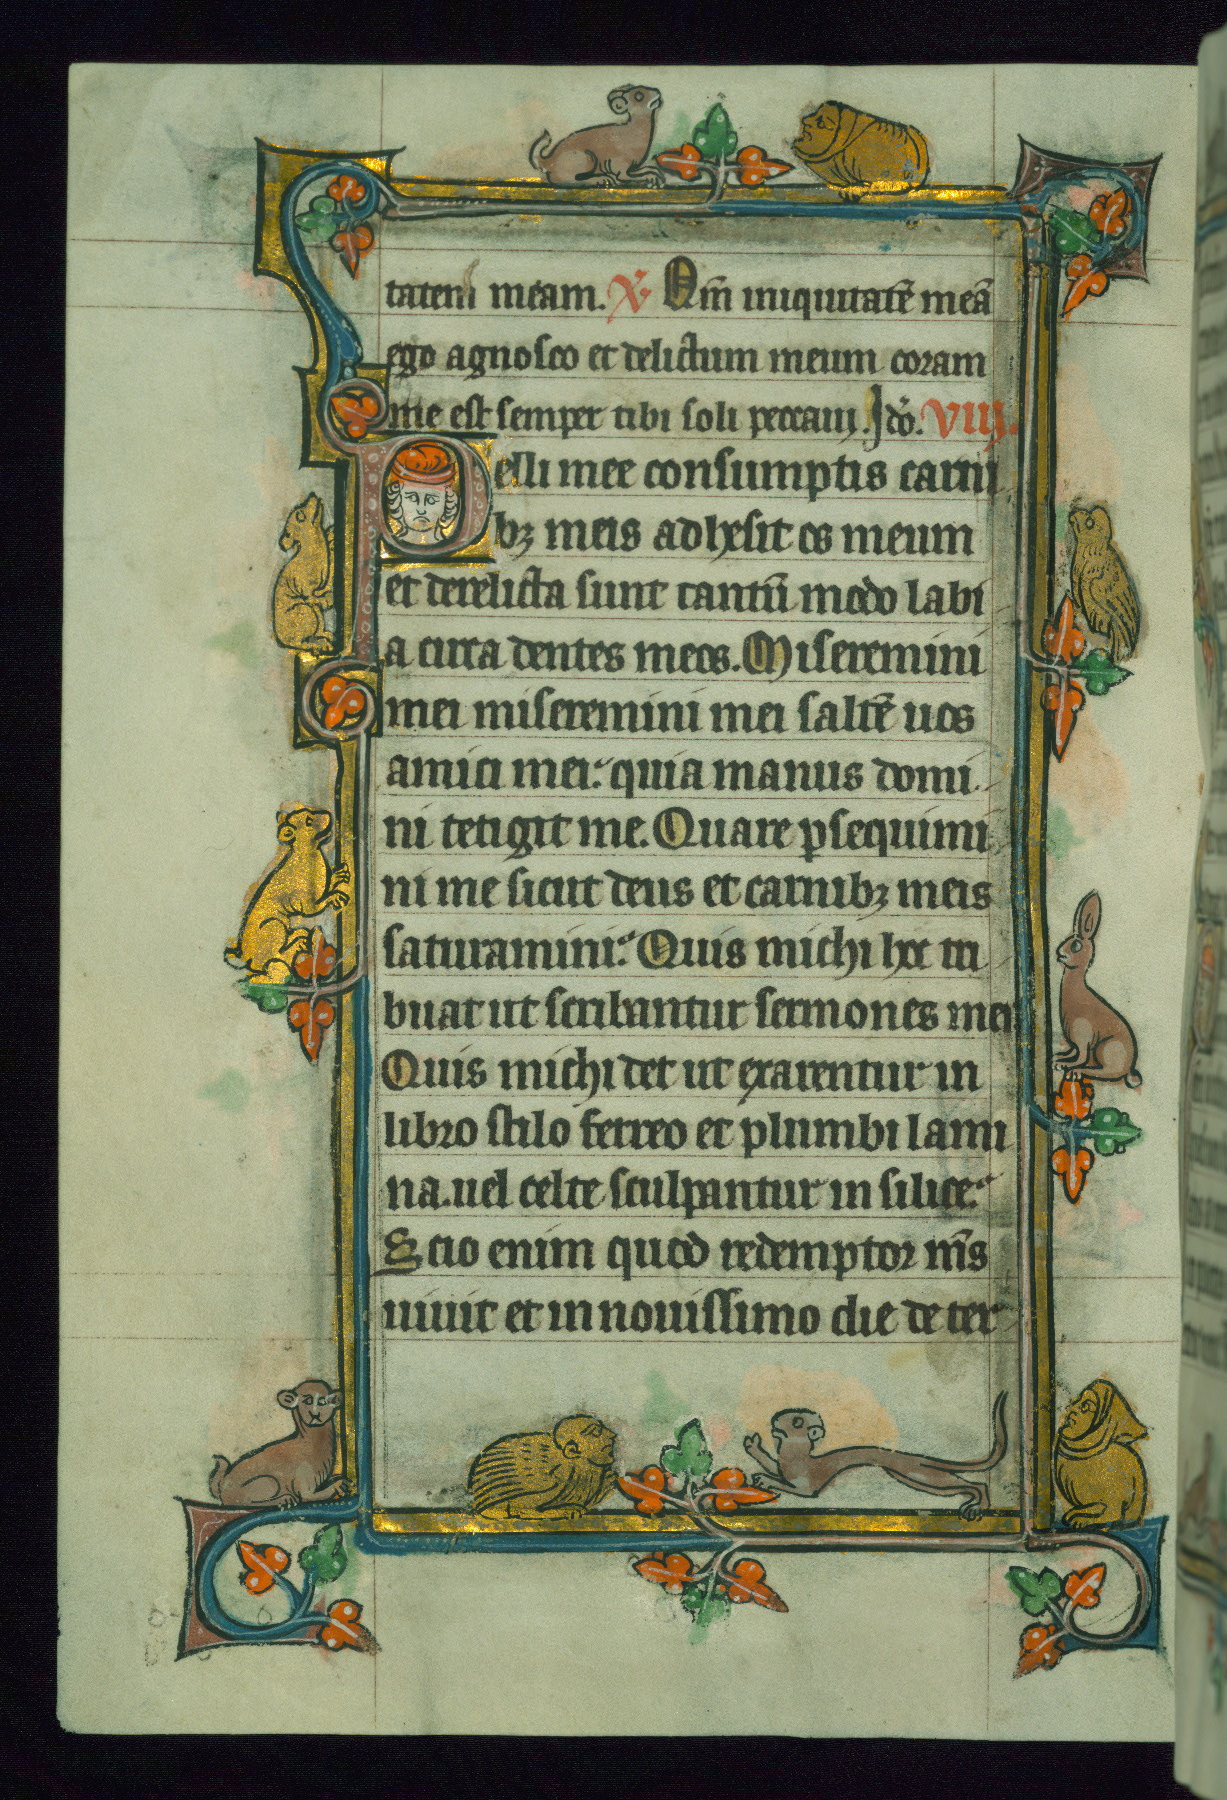 tatem meam. X. Qm̄ iniquitatē meā
ego agnosco et delictum meum coram
me est semper tibi soli peccaui. Jdō. VIIJ.
Pelli mee consumptis carni
bꝫ meis adhesit os meum
et derelicta sunt tantū modo labi
a circa dentes meos. Miseremini
mei miseremini mei saltē uos
amici mei: quia manus domi
ni tetigit me. Quare ꝑsequimi
ni me sicut deus et carnibꝫ meis
saturamini: Quis michi hec tri
buat ut scribantur sermones mei
Quis michi det ut exarentur in
libro stilo ferreo et plumbi lami
na. uel celte sculpantur in silice:
Scio enim quod redemptor m̄s
uiuit et in nouissimo die de ter